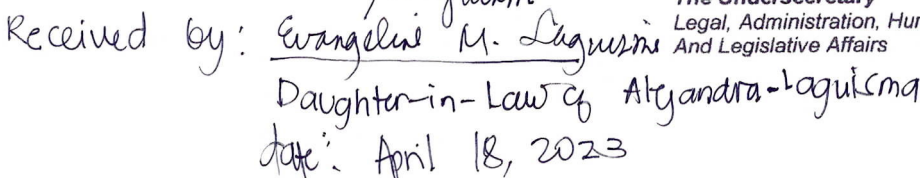 The Undersecretary
Legal, Administration, Hu
And Legislative Affairs
Received by: Evangeline M. Laguisma
Daughter-in-Law of Alejandra Laguisma
date: April 18, 2023